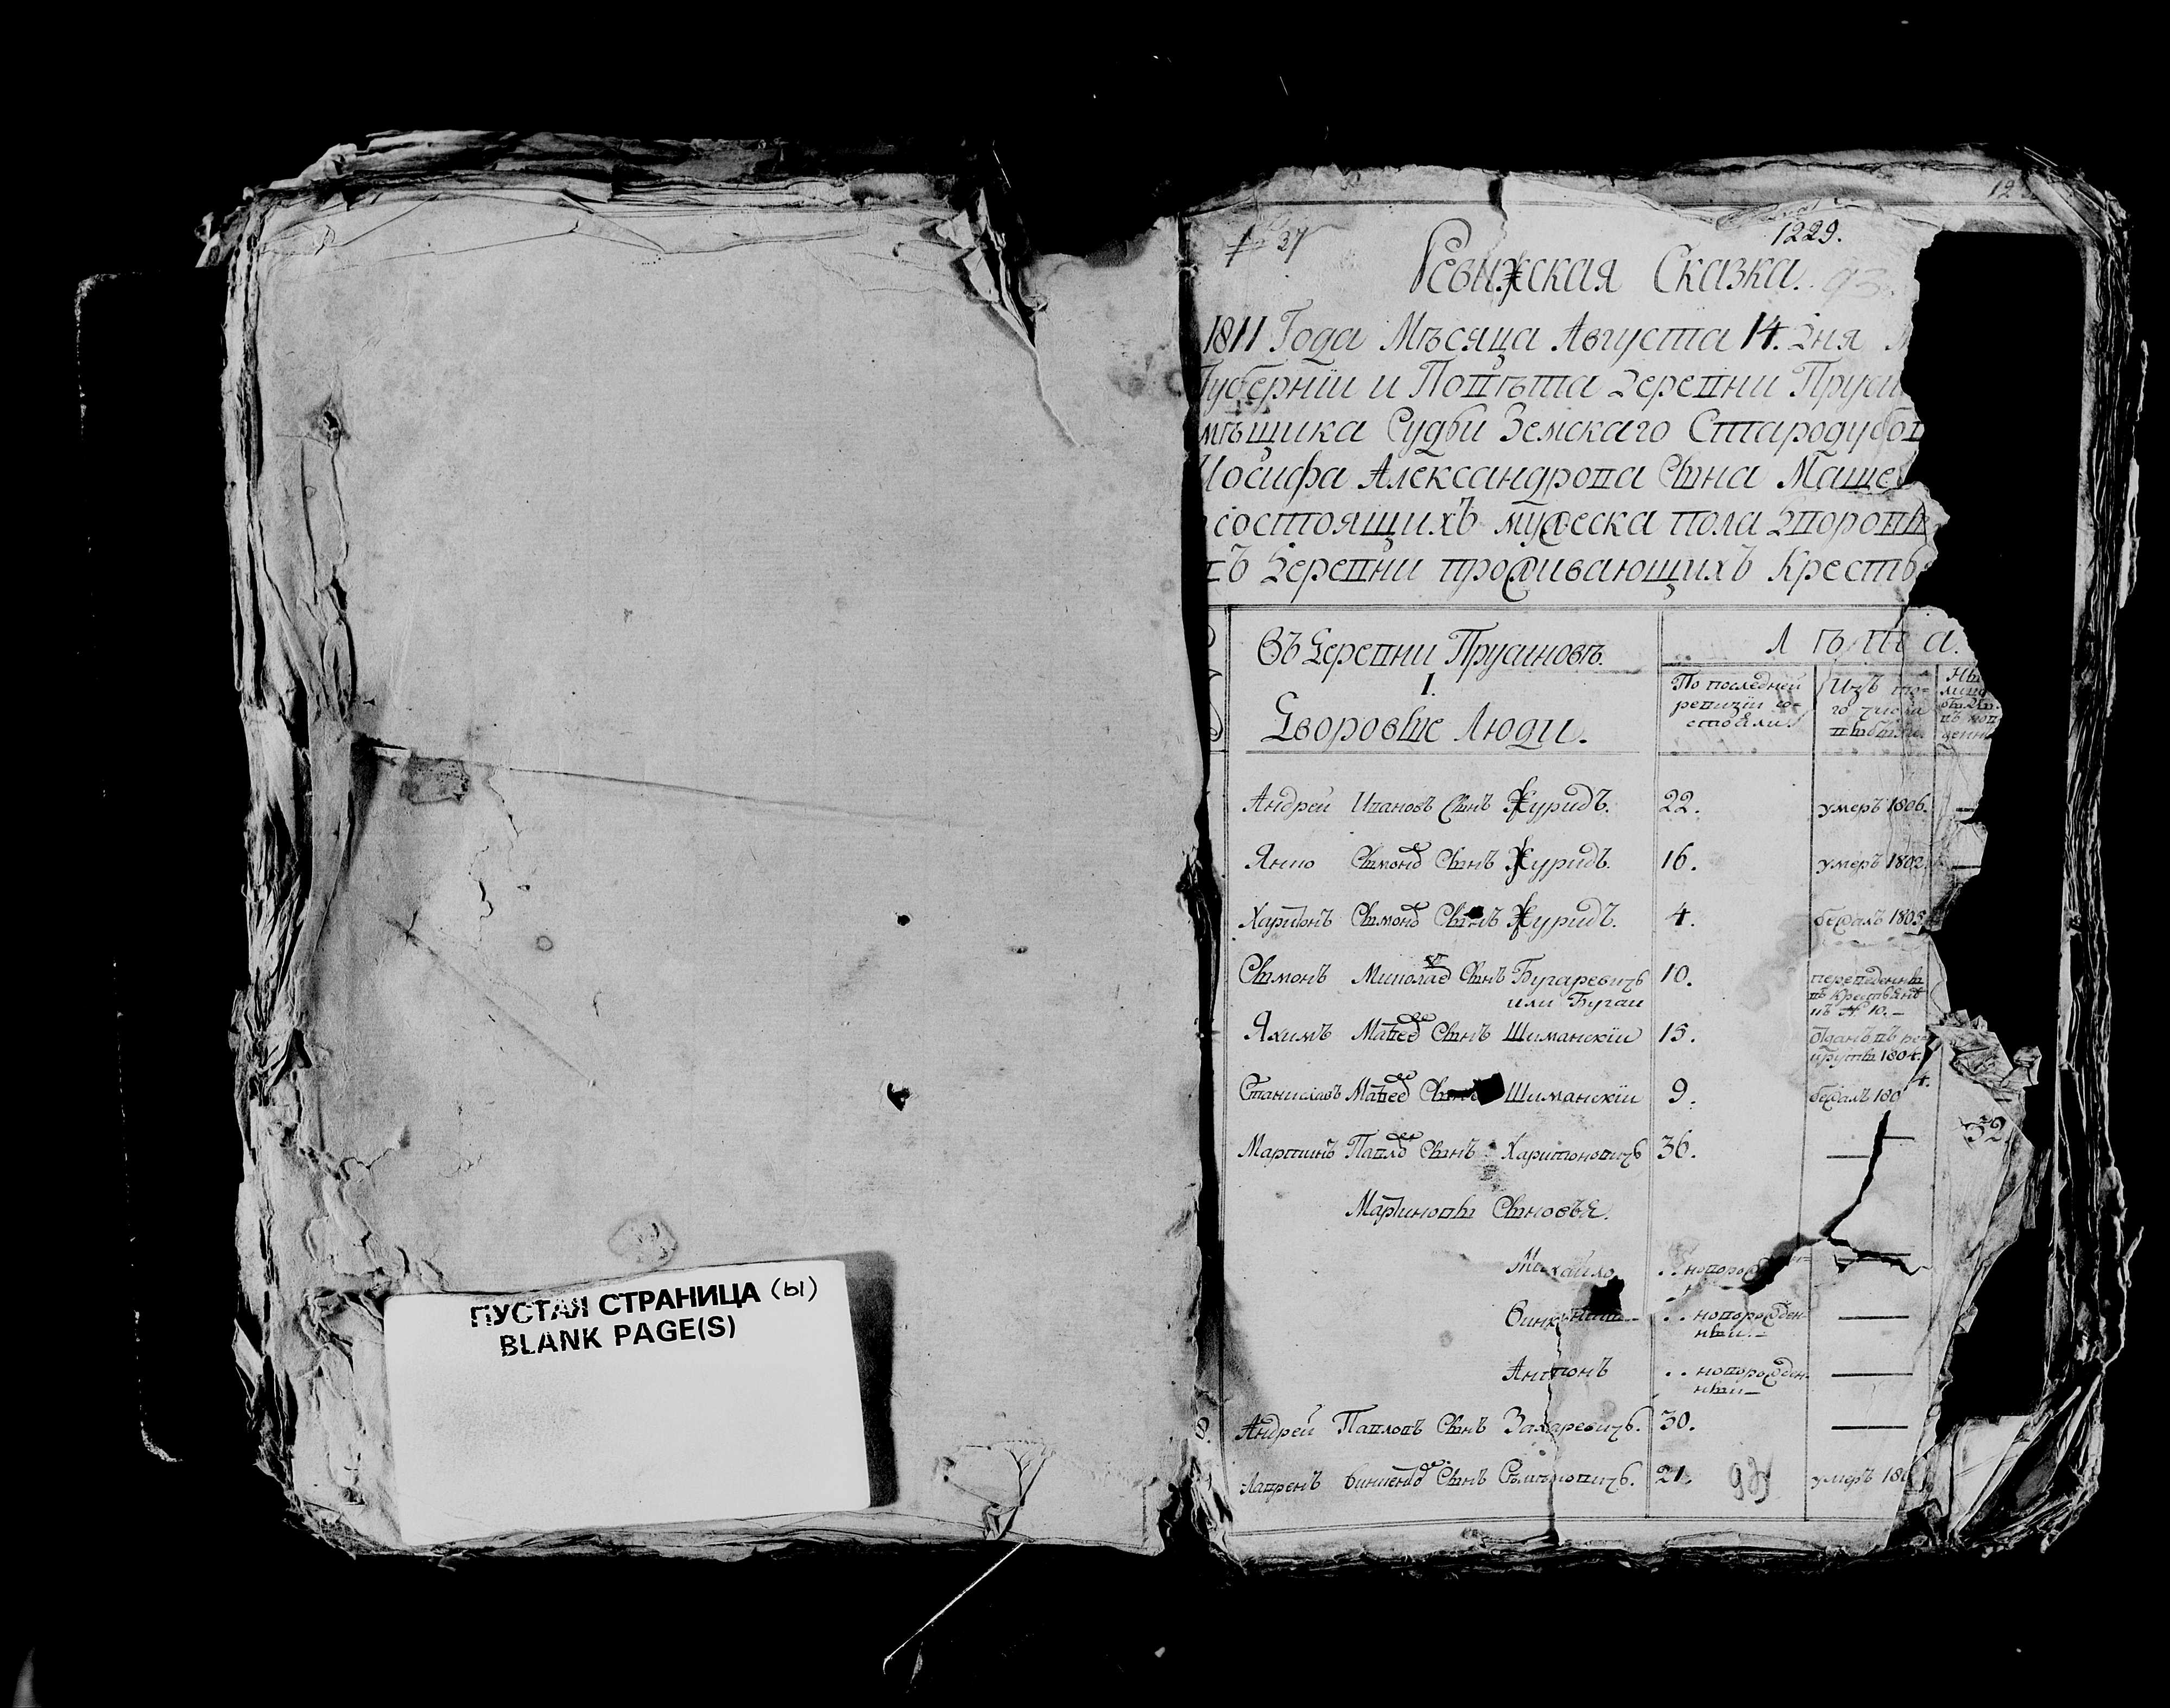 ПУСТАЯ СТРАНИЦА (ы)
BLANK PAGE(S)
№ 37
1229.
Ревижская Сказка.
1811 Года Мѣсяца Августа 14. дня
Губернїи и Повѣта деревни Пруси
мѣщика Судьи Земскаго Стародубов
Иосифа Александрова Сына Маше
состоящихъ мужеска пола дворовы
въ деревни проживающихъ Кресть
Въ деревни Прусиновѣ.
1.
Дворовые Люди.
Лѣта.
По последней ревизїи состояли
Изъ того числа выбыли
Андрей Ивановъ Сынъ Журидъ. 22. умеръ 1806. —
Янко Сымоновъ Сынъ Журидъ. 16. умеръ 1802. —
Харитонъ Сымоновъ Сынъ Журидъ. 4. бежалъ 1805
Сымонъ Миколаевъ Сынъ Бугаревичъ 10. переведенны
или Бугаи въ Крестьяне
въ № 10. —
Яхимъ Матеевъ Сынъ Шиманскїи 15. отданъ въ ре-
круты 1804.
Станиславъ Матеевъ Сынъ Шиманскїи 9. бежалъ 1804.
Мартинъ Павловъ Сынъ Харитоновичъ 36. — 52
Мартиновы Сыновья.
Михайло . . новорож
— . . новорожден- —
ныи. —
Антонъ . . новорожден- —
ныи —
8. Андрей Павловъ Сынъ Захаревичъ. 30. —
Лавренъ Сынъ 21. умеръ 18